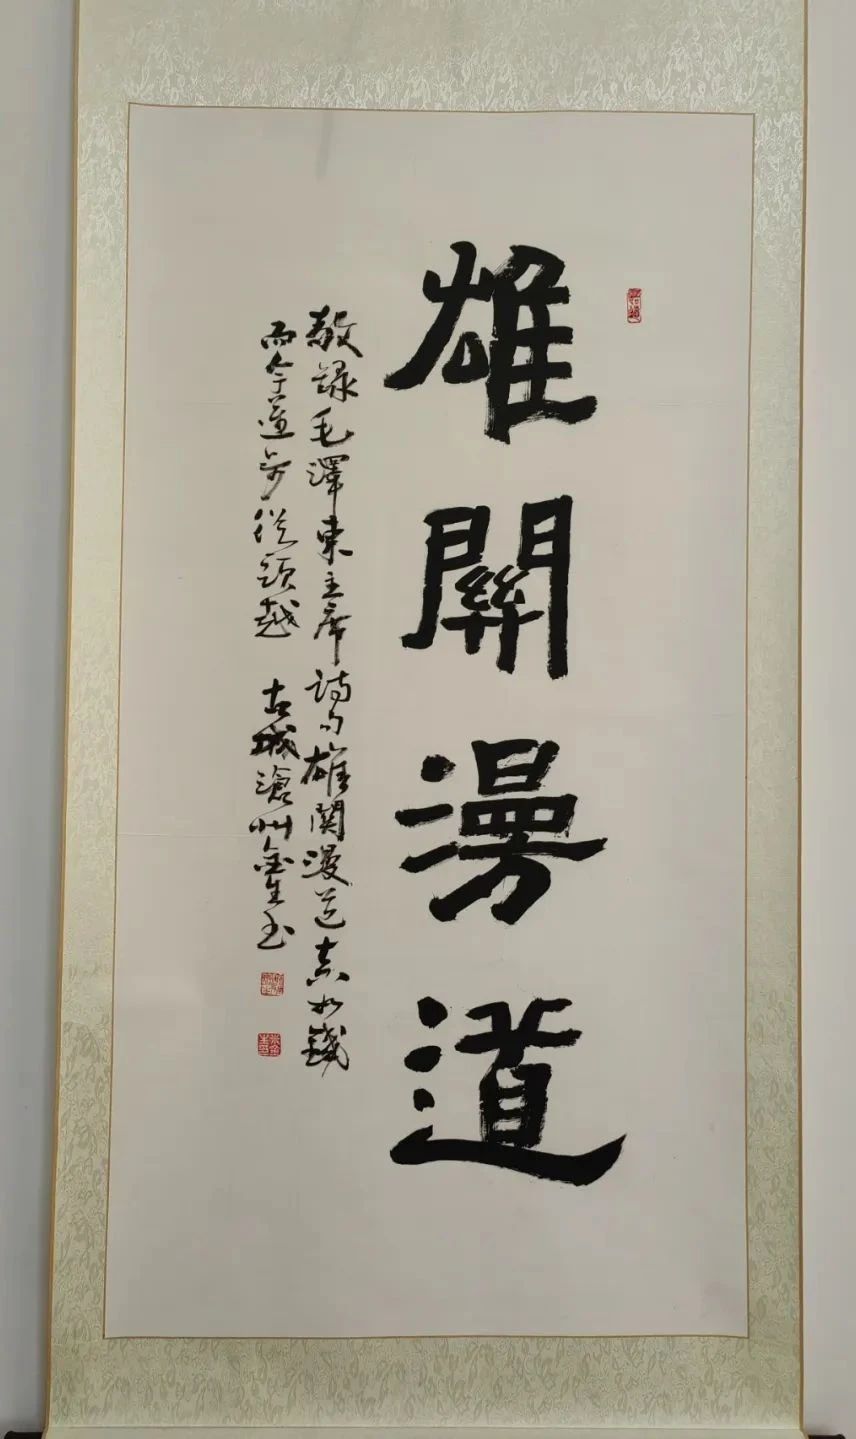 雄關漫道
敬録毛澤東主席詩句雄関漫道真如鐵
而今邁步從頭越 古城滄州金生书